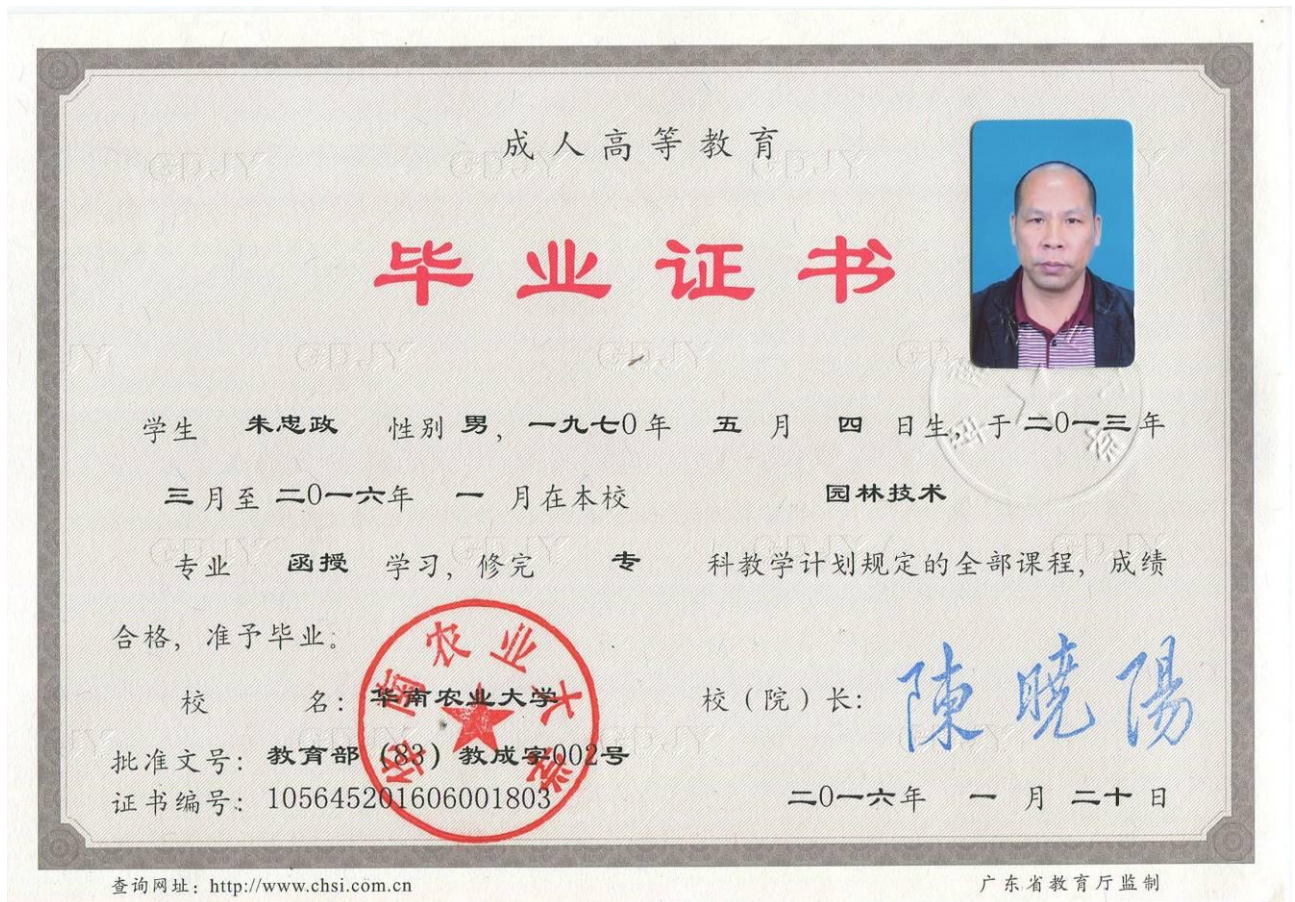 成人高等教育
毕业证书
学生 朱忠政 性别 男，一九七0年 五 月 四 日生，于 二0一三年
三月至 二0一六年 一 月在本校 园林技术
专业 函授 学习，修完 专 科教学计划规定的全部课程，成绩
合格，准予毕业。
校 名：华南农业大学 校（院）长：陳曉陽
批准文号：教育部（83）教成字002号
证书编号：105645201606001803 二0一六年 一 月 二十 日
华南农业大学
查询网址：http://www.chsi.com.cn 广东省教育厅监制
GDJY